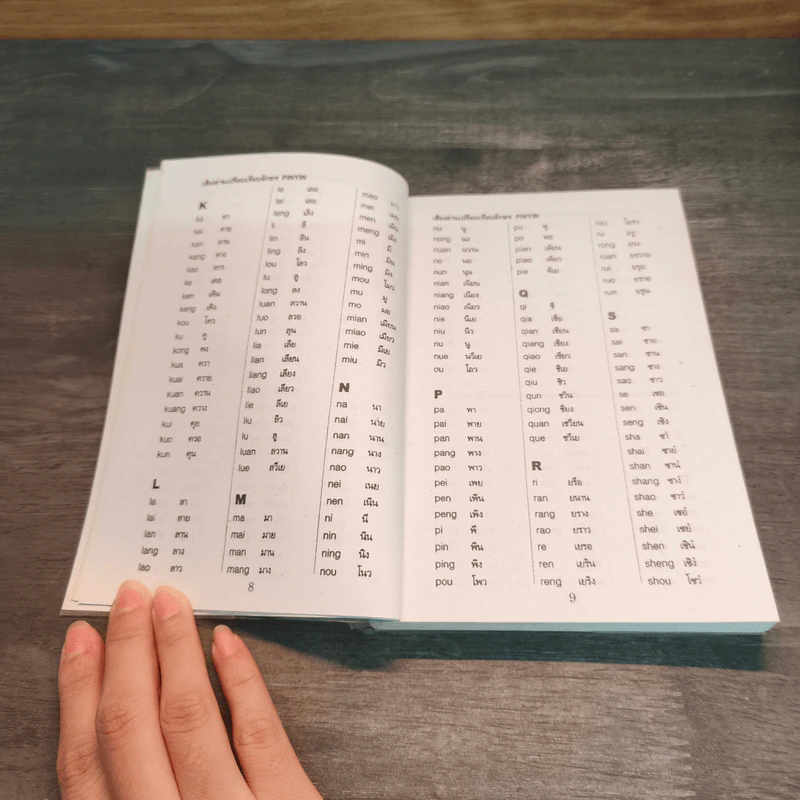 เสียงอ่านเปรียบเทียบอักษร PINYIN
K
ka คา
kai คาย
kan คาน
kang คาง
kao คาว
ke เคอ
ken เคิน
keng เคิง
kou โคว
ku คู
kong คง
kua ควา
kuai ควาย
kuan ควาน
kuang ควาง
kui คุย
kuo ควอ
kun คุน
L
la ลา
lai ลาย
lan ลาน
lang ลาง
lao ลาว
le เลอ
lei เลย
leng เลิง
li ลี
lin ลิน
ling ลิง
lou โลว
lu ลู
long ลง
luan ลวาน
luo ลวอ
lun ลุน
lia เลีย
lian เลียน
liang เลียง
liao เลียว
lie ลีเย
liu ลิว
lu ลู
luan ลวาน
lue ลวีเย
M
ma มา
mai มาย
man มาน
mang มาง
mao มาว
mei เมย
men เมิน
meng เมิง
mi มี
min มิน
ming มิง
mou โมว
mu มู
mo มอ
mian เมียน
miao เมียว
mie มีเย
miu มิว
N
na นา
nai นาย
nan นาน
nang นาง
nao นาว
nei เนย
nen เนิน
ni นี
nin นิน
ning นิง
nou โนว
8
เสียงอ่านเปรียบเทียบอักษร PINYIN
nu นู
nong นง
nuan นวาน
no นอ
nun นุน
nian เนียน
niang เนียง
niao เนียว
nie นีเย
niu นิว
nu นู
nue นวีเย
ou โอว
P
pa พา
pai พาย
pan พาน
pang พาง
pao พาว
pei เพย
pen เพิน
peng เพิง
pi พี
pin พิน
ping พิง
pou โพว
pu พู
po พอ
pian เพียน
piao เพียว
pie พีเย
Q
qi ชี
qia เชีย
qian เชียน
qiang เชียง
qiao เชียว
qie ชีเย
qiu ชิว
qun ชวิน
qiong ชียง
quan ชวียน
que ชวีเย
R
ri ยรือ
ran ยราน
rang ยราง
rao ยราว
re เยรอ
ren เยริน
reng เยริง
rou โยรว
ru ยรู
rong ยรง
ruan ยรวาน
rui ยรุย
ruo ยรวอ
run ยรุน
S
sa ซา
sai ซาย
san ซาน
sang ซาง
sao ซาว
se เซอ
sen เซิน
seng เซิง
sha ซา์
shai ซาย์
shan ซาน์
shang ซาง์
shao ซาว์
she เซอ์
shei เซย์
shen เซิน์
sheng เซิง์
shou โซว์
9